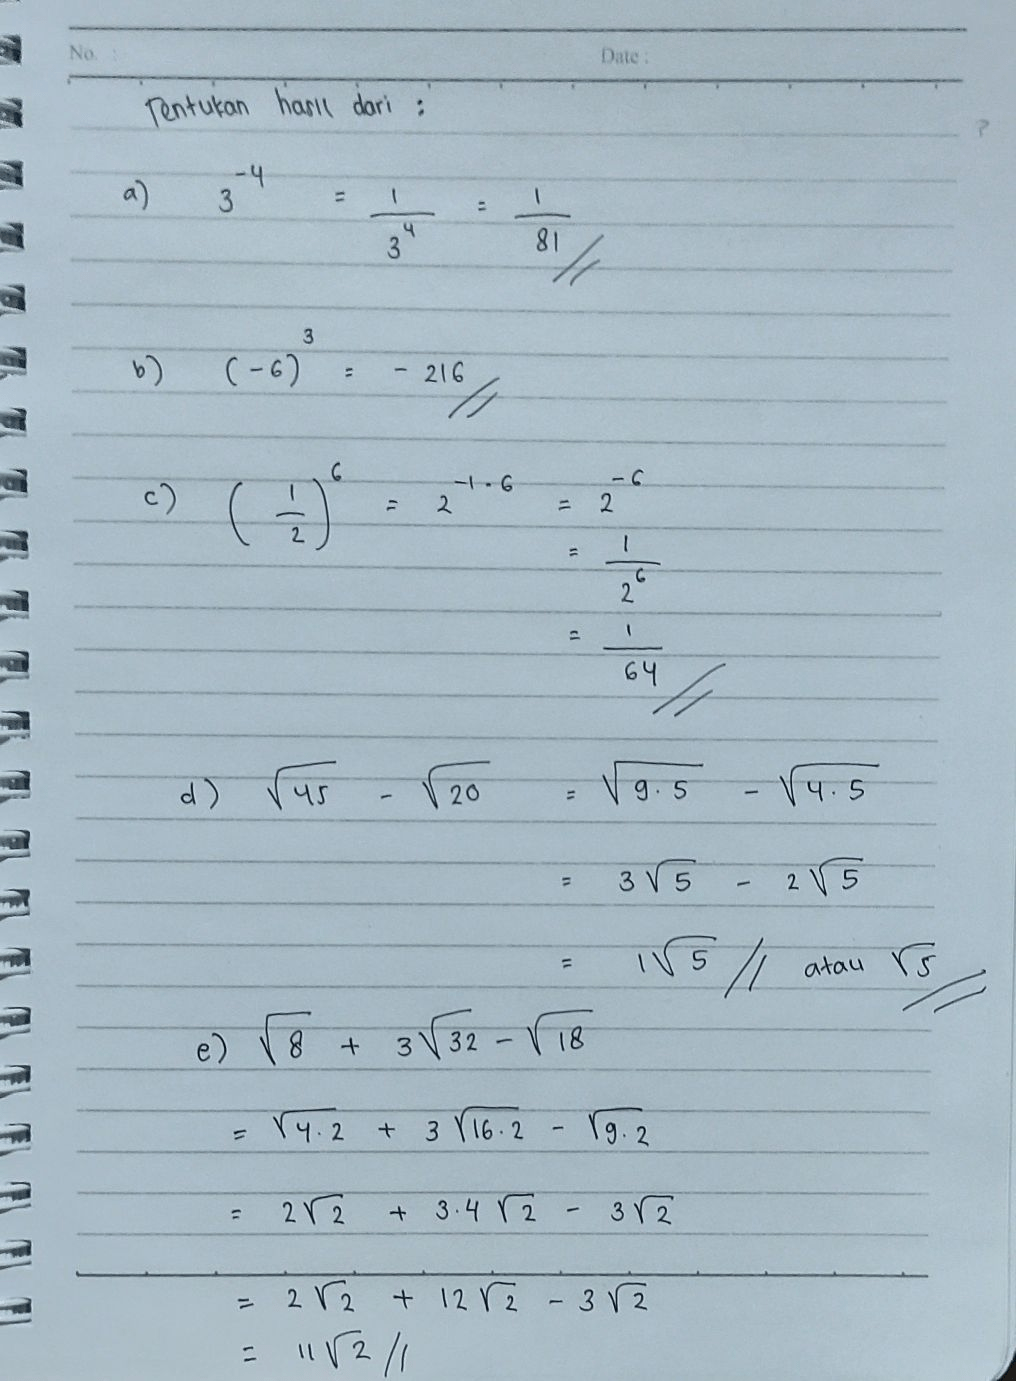 No. : Date :
Tentukan hasil dari :
a) 3⁻⁴ = 1/3⁴ = 1/81 //
b) (-6)³ = - 216 //
c) (1/2)⁶ = 2⁻¹·⁶ = 2⁻⁶
= 1/2⁶
= 1/64 //
d) √45 - √20 = √9.5 - √4.5
= 3√5 - 2√5
= 1√5 // atau √5 //
e) √8 + 3√32 - √18
= √4.2 + 3√16.2 - √9.2
= 2√2 + 3.4√2 - 3√2
= 2√2 + 12√2 - 3√2
= 11√2 //